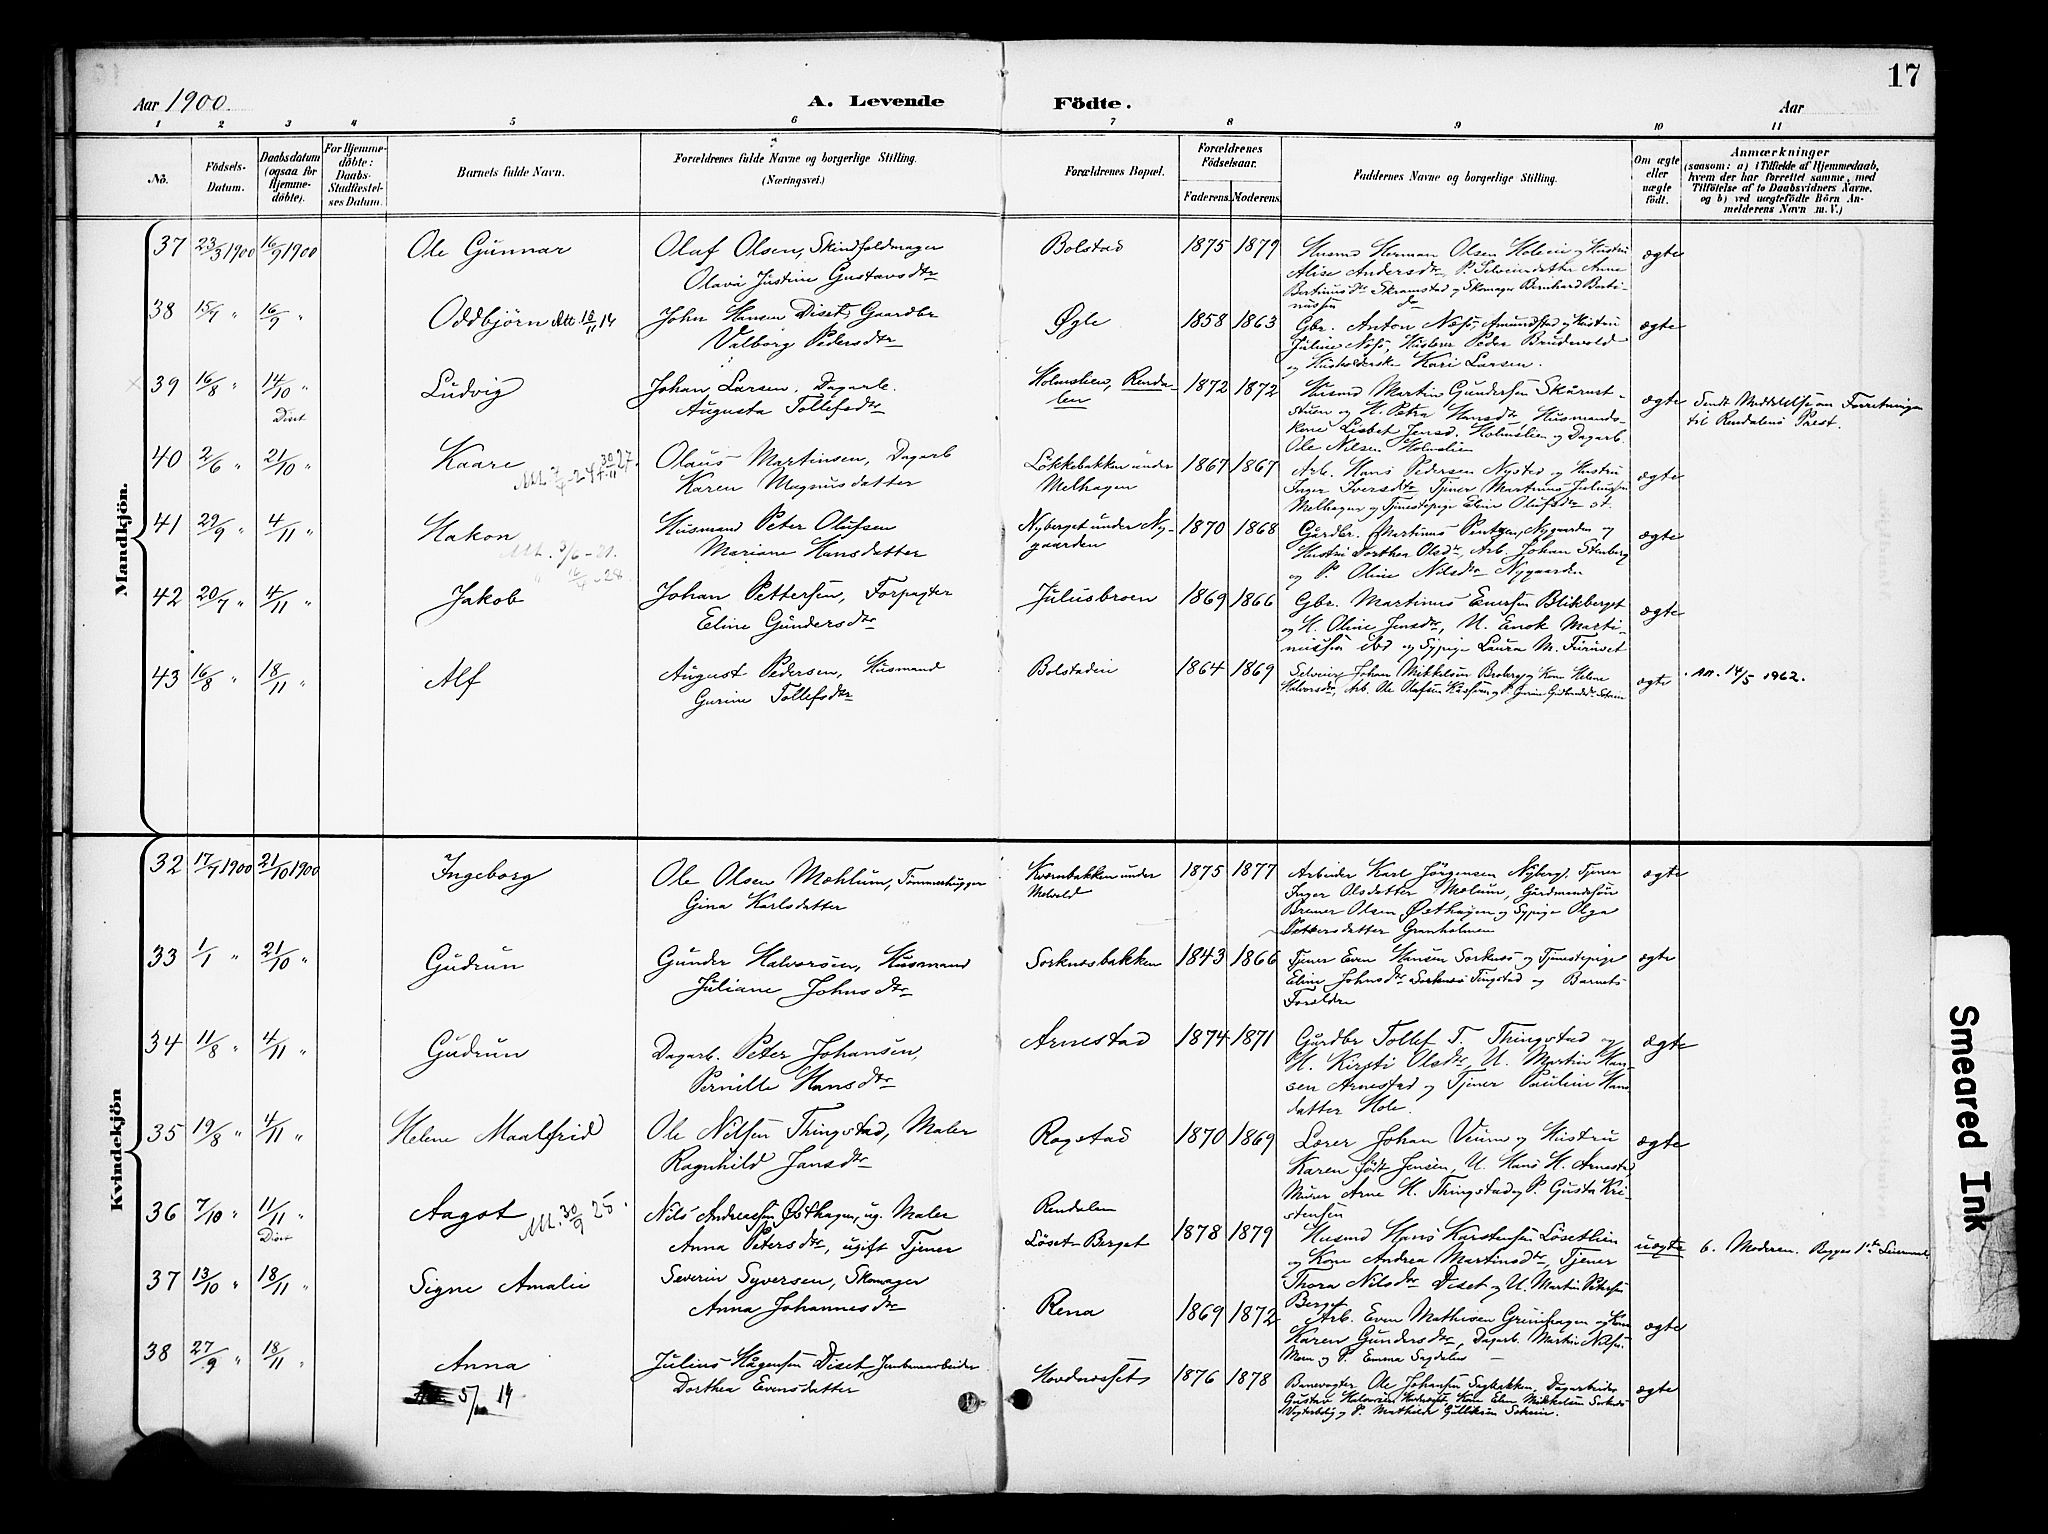 17
Aar 1900
A. Levende Födte.
Aar
1 2 3 4 5 6 7 8 9 10 11
No.
Födsels-Datum.
Daabsdatum (ogsaa for Hjemmedöbte).
For Hjemmedöbte: Daabs-Stadfæstelses Datum.
Barnets fulde Navn.
Forældrenes fulde Navne og borgerlige Stilling.
(Næringsvei.)
Forældrenes Bopæl.
Forældrenes Födselsaar.
Faderens. Moderens.
Faddernes Navne og borgerlige Stilling.
Om ægte eller uægte födt.
Anmærkninger
(saasom: a) i Tilfælde af Hjemmedaab, hvem der har forrettet samme, med Tilföielse af to Daabsvidners Navne, og b) ved uægtefödte Börn Anmelderens Navn m. V.)
Mandkjön.
37 23/3 1900 16/9 1900 Ole Gunnar Olaf Olsen, Skindfeldmager Bolstad 1875 1879 Husmd Herman Olsen Holein og Hustru ægte
Olava Justine Gustavsdtr Alise Andersdtr, P. Selveierdatter Anne
Bertinusdtr Skramstad og Skomager Bernhard Bertinussen do
38 15/7 " 16/9 " Oddbjörn Att. 18/11 14 John Hansen Diset, Gaardbr Øgle 1858 1863 Gbr. Anton Næss, Amundstad og Hustru ægte
Valborg Pedersdtr Juline Næss, Husleier Peder Brudevold
og Husholderske Kari Larsen.
39 16/8 " 14/10 " Diset Ludvig Johan Larsen, Dagarb. Holmslien, Rendalen 1872 1872 Husmd Martin Gundersen Skårnstuen ægte Sendt Meddelelse om Forretningen
Augusta Tollefsdtr og H. Petra Hansdtr, Husmandskone Lisbet Jensd. Holmslien og Dagarb. til Rendalens Prest.
Ole Nilsen Holmslien
40 2/6 " 21/10 " Kaare Olaus Martinsen, Dagarb Løkkebakken under 1867 1867 Arb. Hans Pedersen Nysted og Hustru ægte
Karen Magnusdatter Melhagen Inger Iversdtr, Tjener Martinus Julius
Melhagen og Tjenestepige Eline Olufsdtr st.
41 29/9 " 4/11 " Hakon Husmand Peter Olufsen Nyberget under Ny- 1870 1868 Gardbr. Martinus Pentzen, Nygaarden og ægte
Att. 3/6 - 21. Mariane Hansdatter gaarden Hustru Dorthea Olsdtr, Arb. Johan Stenberg
" 16/4 - 28 og P. Oline Nilsdtr Nygaarden
42 20/7 " 4/11 " Jakob Johan Pettersen, Forpagter Julusbroen 1869 1866 Gbr. Martinus Enersen Blikberget ægte
Eline Gundersdtr og H. Oline Jensdtr, U. Enok Martinussen ibd og Sypige Laura M. Furuset
43 16/8 " 18/11 " Alf August Pedersen, Husmand Bolstadein 1864 1869 Selveier Johan Mikkelsen Broberg og Kone Helene ægte Att. 14/5 1962.
Gurine Tollefsdtr Halvorsdtr, Arb. Ole Olafsen
Kvindekjön
32 17/7 1900 21/10 1900 Ingeborg Ole Olsen Mæhlum, Tømmerhugger Kværnbakken under 1875 1877 Arbeider Karl Jørgensen Nyberg, Tjener ægte
Gina Karlsdatter Melvold Inger Olsdatter Mælum, Gårdmandssön
Brener Olsen Østhagen og Sypige Olga
Pettersdatter Granholmen
33 1/1 " 21/10 " Gudrun Gunder Halvorsen, Husmand Sorknesbakken 1843 1866 Tjener Even Hansen Sorknes og Tjenestepige ægte
Juliane Johnsdtr Eline Johnsdtr Sorknes Tingstad og Barnets
Foreldre
34 11/8 " 4/11 " Gudrun Dagarb. Peter Johansen, Arnestad 1874 1871 Gardbr Tollef T. Thingstad og ægte
Pernille Hansdtr H. Kirsti Olsdtr, U. Martin Hansen Arnestad og Tjener Pauline Hansdatter Hole.
35 19/8 " 4/11 " Helene Maalfrid Ole Nilsen Thingstad, Maler Rogstad 1870 1869 Lærer Johan Veum og Hustru ægte
Ragnhild Jansdtr Karen født Jensen, U. Hans H. Arnestad,
Murer Arne H. Thingstad og P. Gusta Kristensen
36 7/10 " 11/11 " Diset Aagot Att. 30/9 25. Nils Andreassen Østhagen, ug. Maler Rendalen
Anna Petersdtr, ugift Tjener Løset-Berget 1878 1879 Husmd Hans Karstensen Løsetlien uægte 6. Moderen. Begges 1ste Leiermaal
og Kone Andrea Martinsdtr, Tjener
Thora Nilsdtr Diset og U. Martin Petersen
Berget
37 13/10 " 18/11 " Signe Amalie Severin Syversen, Skomager Rena 1869 1872 Arb. Even Mathisen Grinihagen og Kone ægte
Anna Johannesdtr Karen Gundersdtr, Dagarb. Martin Nilsen
Moen og P. Emma Sagdalen
38 27/9 " 18/11 " Anna Julius Hågensen Diset, Jernbanearbeider Hovdneset 1876 1878 Banevogter Ole Johansen Sagbakken, Dagarbeider ægte
5/10 14 Dorthea Evensdatter Gustav Halvorsen Hovdneset, Kone Elen Mikkelsen Sorknes
Vogterbolig og P. Mathilde Gulliksen
Smeared Ink